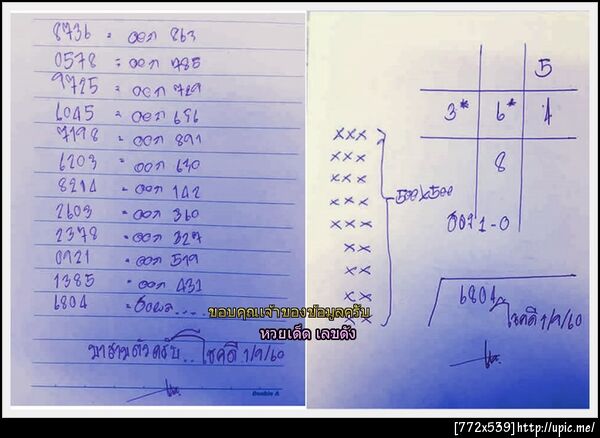 8736 = ออก 863
0578 = ออก 785
9725 = ออก 729
6045 = ออก 656
7198 = ออก 891
6203 = ออก 630
8214 = ออก 142
2603 = ออก 360
2378 = ออก 327
0921 = ออก 519
1385 = ออก 431
6804 = รอผล...
ขอบคุณเจ้าของข้อมูลครับ
หวยเด็ด เลขดัง
มาสามตัวครับ.. โชคดี 1/9/60
Double A
5
3* 6* 1
8
xxx
xxx
xxx
xxx
xxx
xx
xx
xx
xx
500x500
6804
โชคดี 1/9/60
[772x539]http://upic.me/